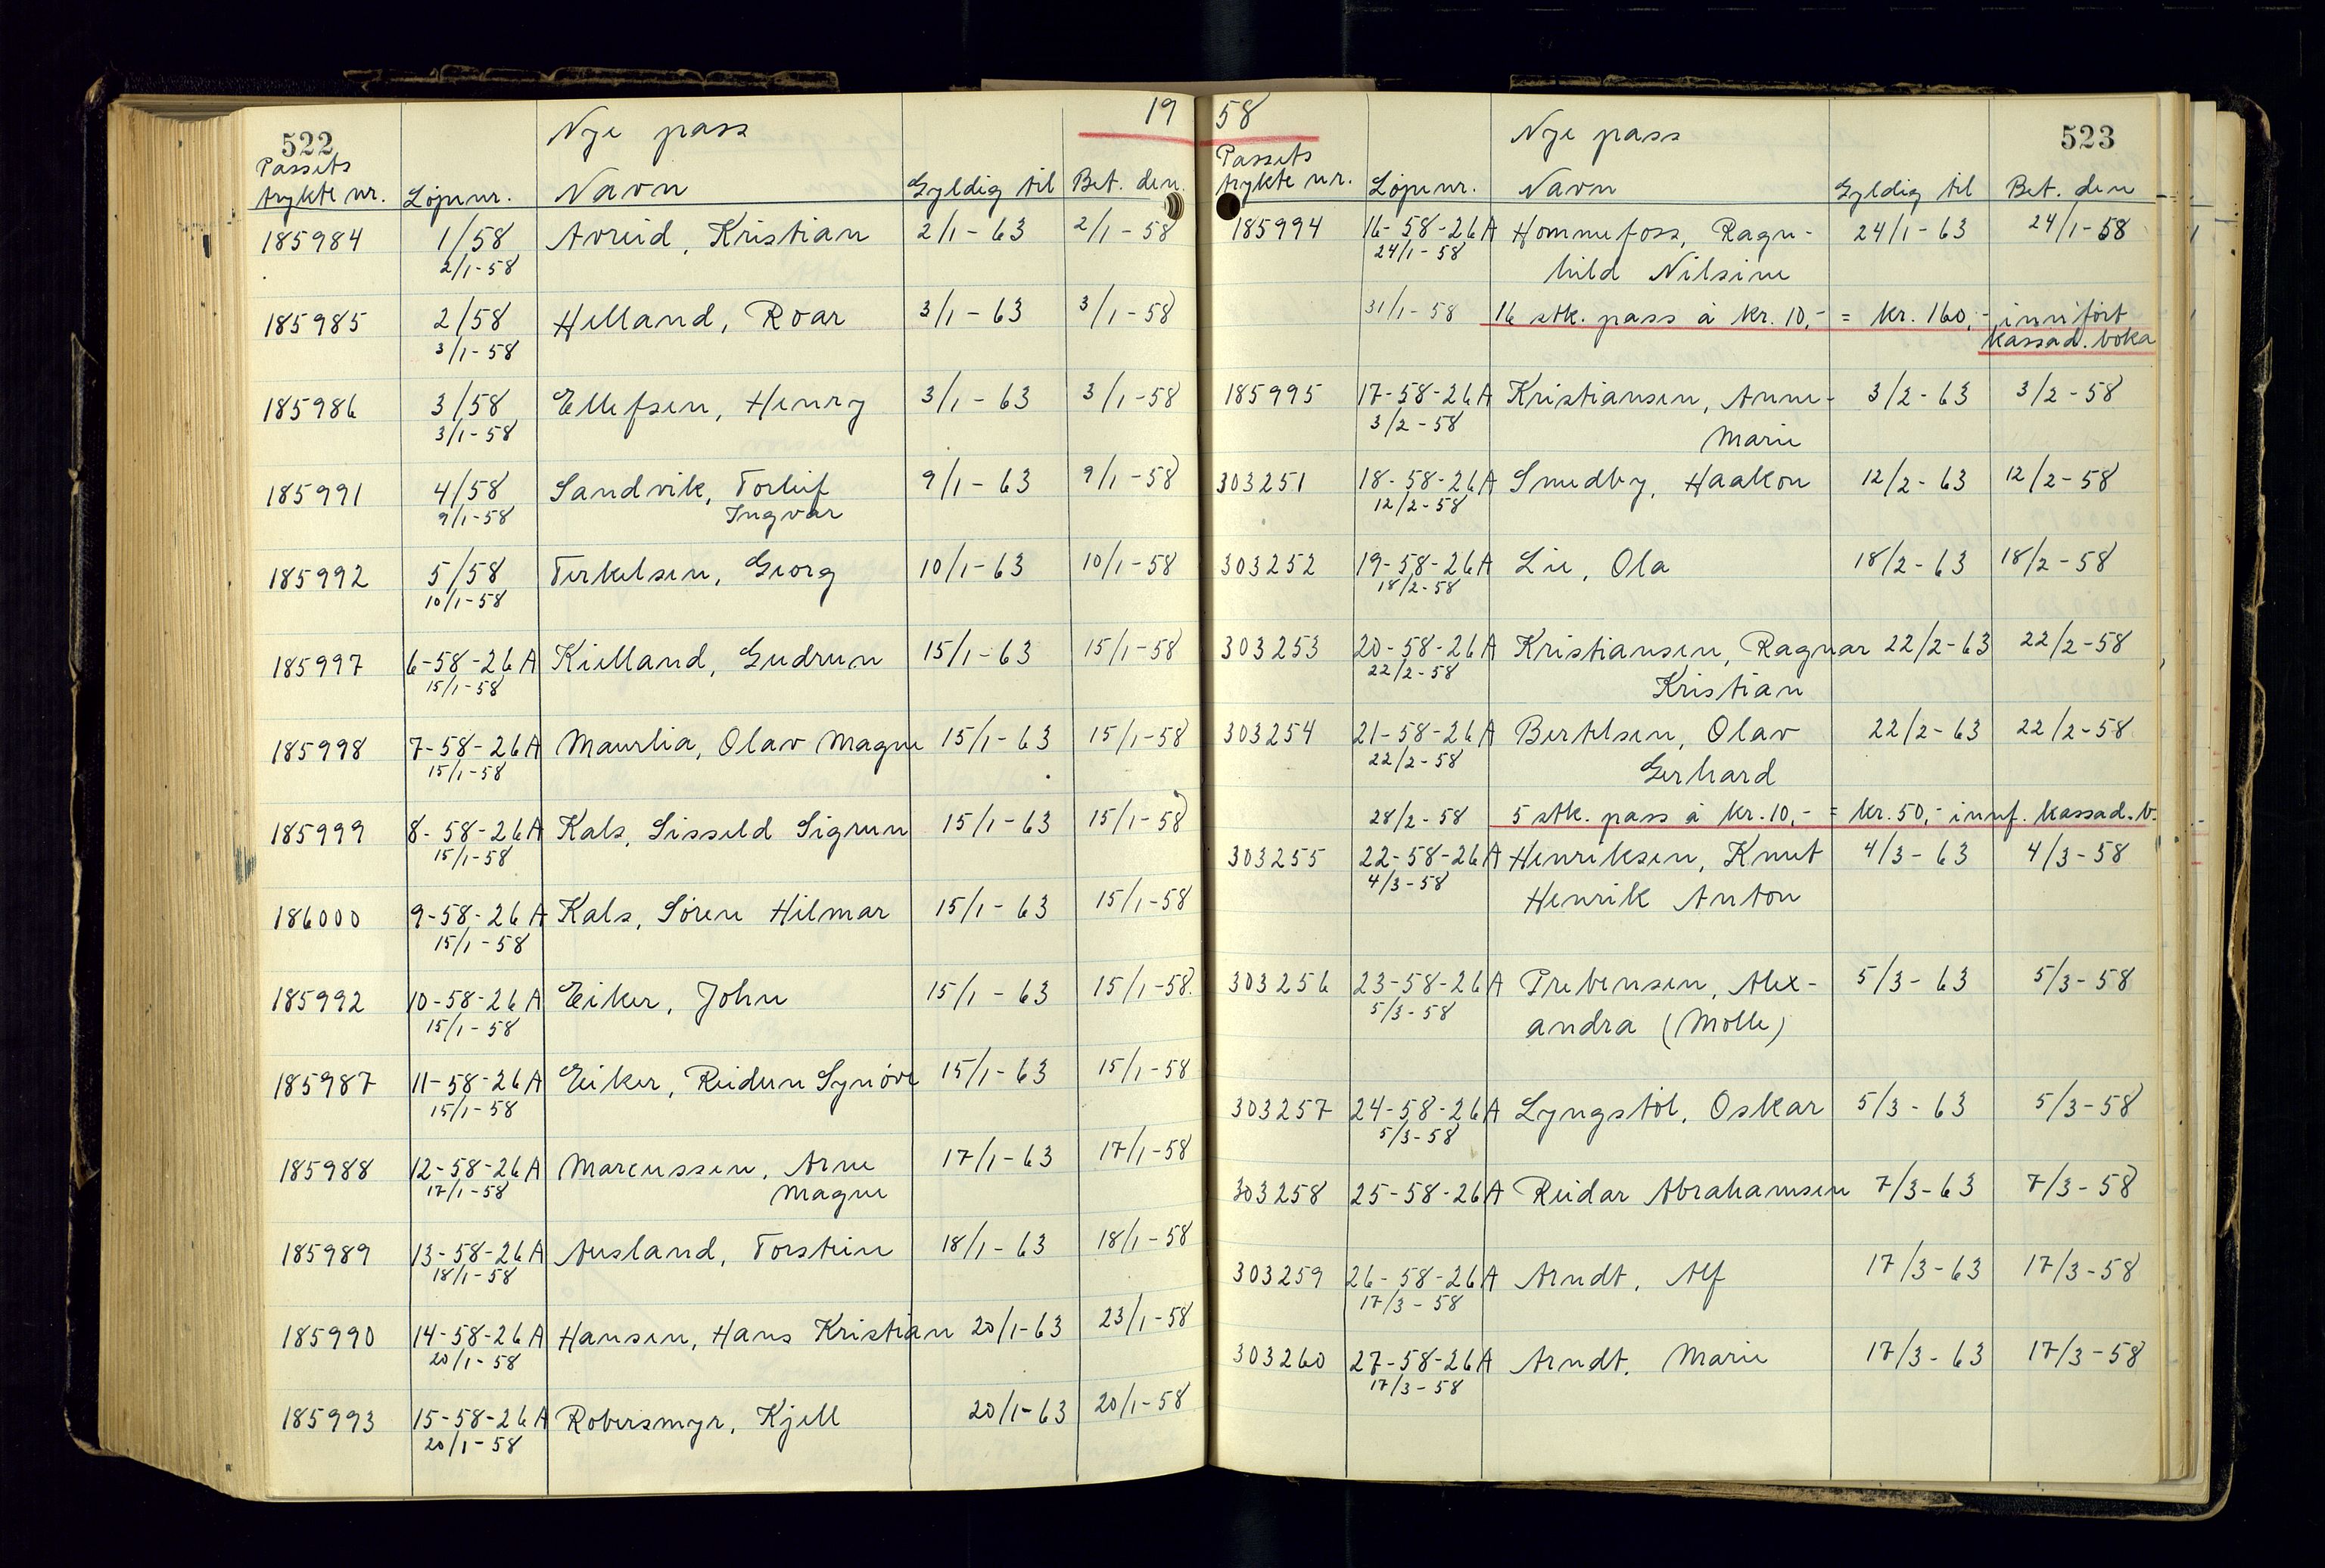 522
Nye pass
19
Passets
trykte nr. Løpenr. Navn Gyldig til Bet. den.
185984 1/58 Avreid, Kristian 2/1-63 2/1-58
2/1-58
185985 2/58 Helland, Roar 3/1-63 3/1-58
3/1-58
185986 3/58 Ellefsen, Henry 3/1-63 3/1-58
3/1-58
185991 4/58 Sandvik, Torleif 9/1-63 9/1-58
9/1-58 Ingvar
185992 5/58 Terkelsen, Georg 10/1-63 10/1-58
10/1-58
185997 6-58-26A Kielland, Gudrun 15/1-63 15/1-58
15/1-58
185998 7-58-26A Maurlia, Olav Magne 15/1-63 15/1-58
15/1-58
185999 8-58-26A Kals, Sisseld Sigrun 15/1-63 15/1-58
15/1-58
186000 9-58-26A Kals, Søren Hilmar 15/1-63 15/1-58
15/1-58
185992 10-58-26A Eiker, John 15/1-63 15/1-58.
15/1-58
185987 11-58-26A Eiker, Reidun Synöve 15/1-63 15/1-58
15/1-58
185988 12-58-26A Marcussen, Arne 17/1-63 17/1-58
17/1-58 Magne
185989 13-58-26A Ausland, Torstein 18/1-63 18/1-58
18/1-58
185990 14-58-26A Hansen, Hans Kristian 20/1-63 23/1-58
20/1-58
185993 15-58-26A Robersmyr, Kjell 20/1-63 20/1-58
20/1-58
58
Nye pass
523
Passets
trykte nr. Løpenr. Navn Gyldig til Bet. den
185994 16-58-26A Hommefoss, Ragn- 24/1-63 24/1-58
24/1-58 hild Nilsine
31/1-58 16 stk. pass à kr. 10,- = kr. 160,- innført
kassad. boka
185995 17-58-26A Kristiansen, Anne- 3/2-63 3/2-58
3/2-58 Marie
303251 18-58-26A Smedby, Haakon 12/2-63 12/2-58
12/2-58
303252 19-58-26A Lie, Ola 18/2-63 18/2-58
18/2-58
303253 20-58-26A Kristiansen, Ragnar 22/2-63 22/2-58
22/2-58 Kristian
303254 21-58-26A Bertelsen, Olav 22/2-63 22/2-58
22/2-58 Gerhard
28/2-58 5 stk. pass à kr. 10,- = kr. 50,- innf. kassad. b.
303255 22-58-26A Henriksen, Knut 4/3-63 4/3-58
4/3-58 Henrik Anton
303256 23-58-26A Prebensen, Alex- 5/3-63 5/3-58
5/3-58 andra (Molle)
303257 24-58-26A Lyngstöl, Oskar 5/3-63 5/3-58
5/3-58
303258 25-58-26A Reidar Abrahamsen 7/3-63 7/3-58
303259 26-58-26A Arndt, Alf 17/3-63 17/3-58
17/3-58
303260 27-58-26A Arndt, Marie 17/3-63 17/3-58
17/3-58